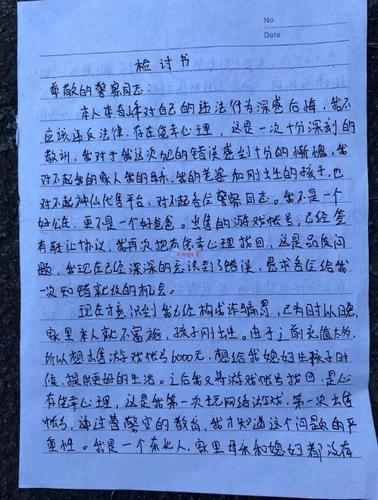 No.
Date
检讨书
尊敬的警察同志：
本人李春峰对自己的违法行为深感后悔，我不
应该违反法律，存在侥幸心理，这是一次十分深刻的
教训，我对于我这次犯的错误感到十分的惭愧，我
对不起我的家人我的母亲，我的老婆和刚出生的孩子，也
对不起神仙代售平台，对不起各位警察同志。我不是一个
好公民，更不是一个好爸爸。出售的游戏帐号，已经签
有转让协议，我再次抱有侥幸心理找回，这是品质问
题，我现在已经深深的去认识到了错误，恳求各位给我
一次知错就改的机会。
现在才意识到我已经构成诈骗罪，已为时以晚，
家里本人就不富裕，孩子刚出生。由于之前充值太多，
所以想出售游戏帐号6000元，想给我媳妇生孩子时
候，提供更好的生活。之后我又将游戏帐号找回，是心
存侥幸心理，这是我第一次玩网络游戏，第一次出售
帐号，通过警察官的教育，我才知道这个问题的严
重性。我是一个东北人，家里母亲和媳妇都没有